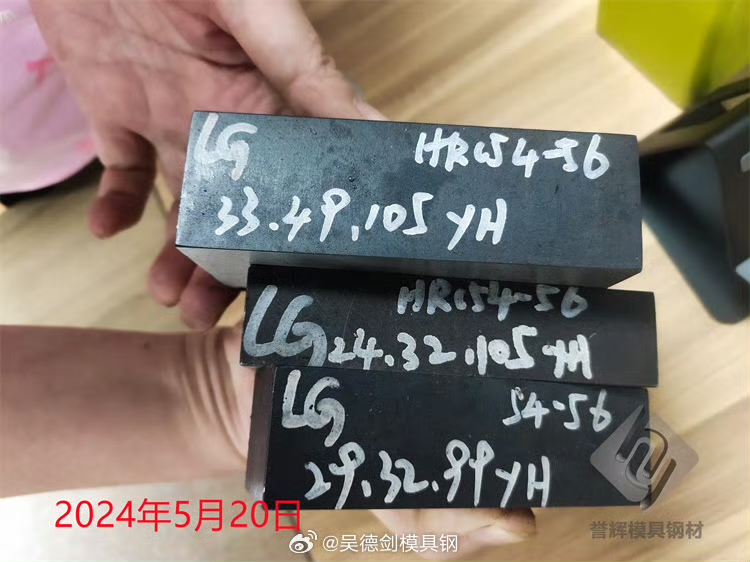 LG HRC54-56
33.49.105 YH
LG HRC54-56
24.32.105 YH
LG 54-56
29.32.99 YH
2024年5月20日
誉辉模具钢材
@吴德剑模具钢